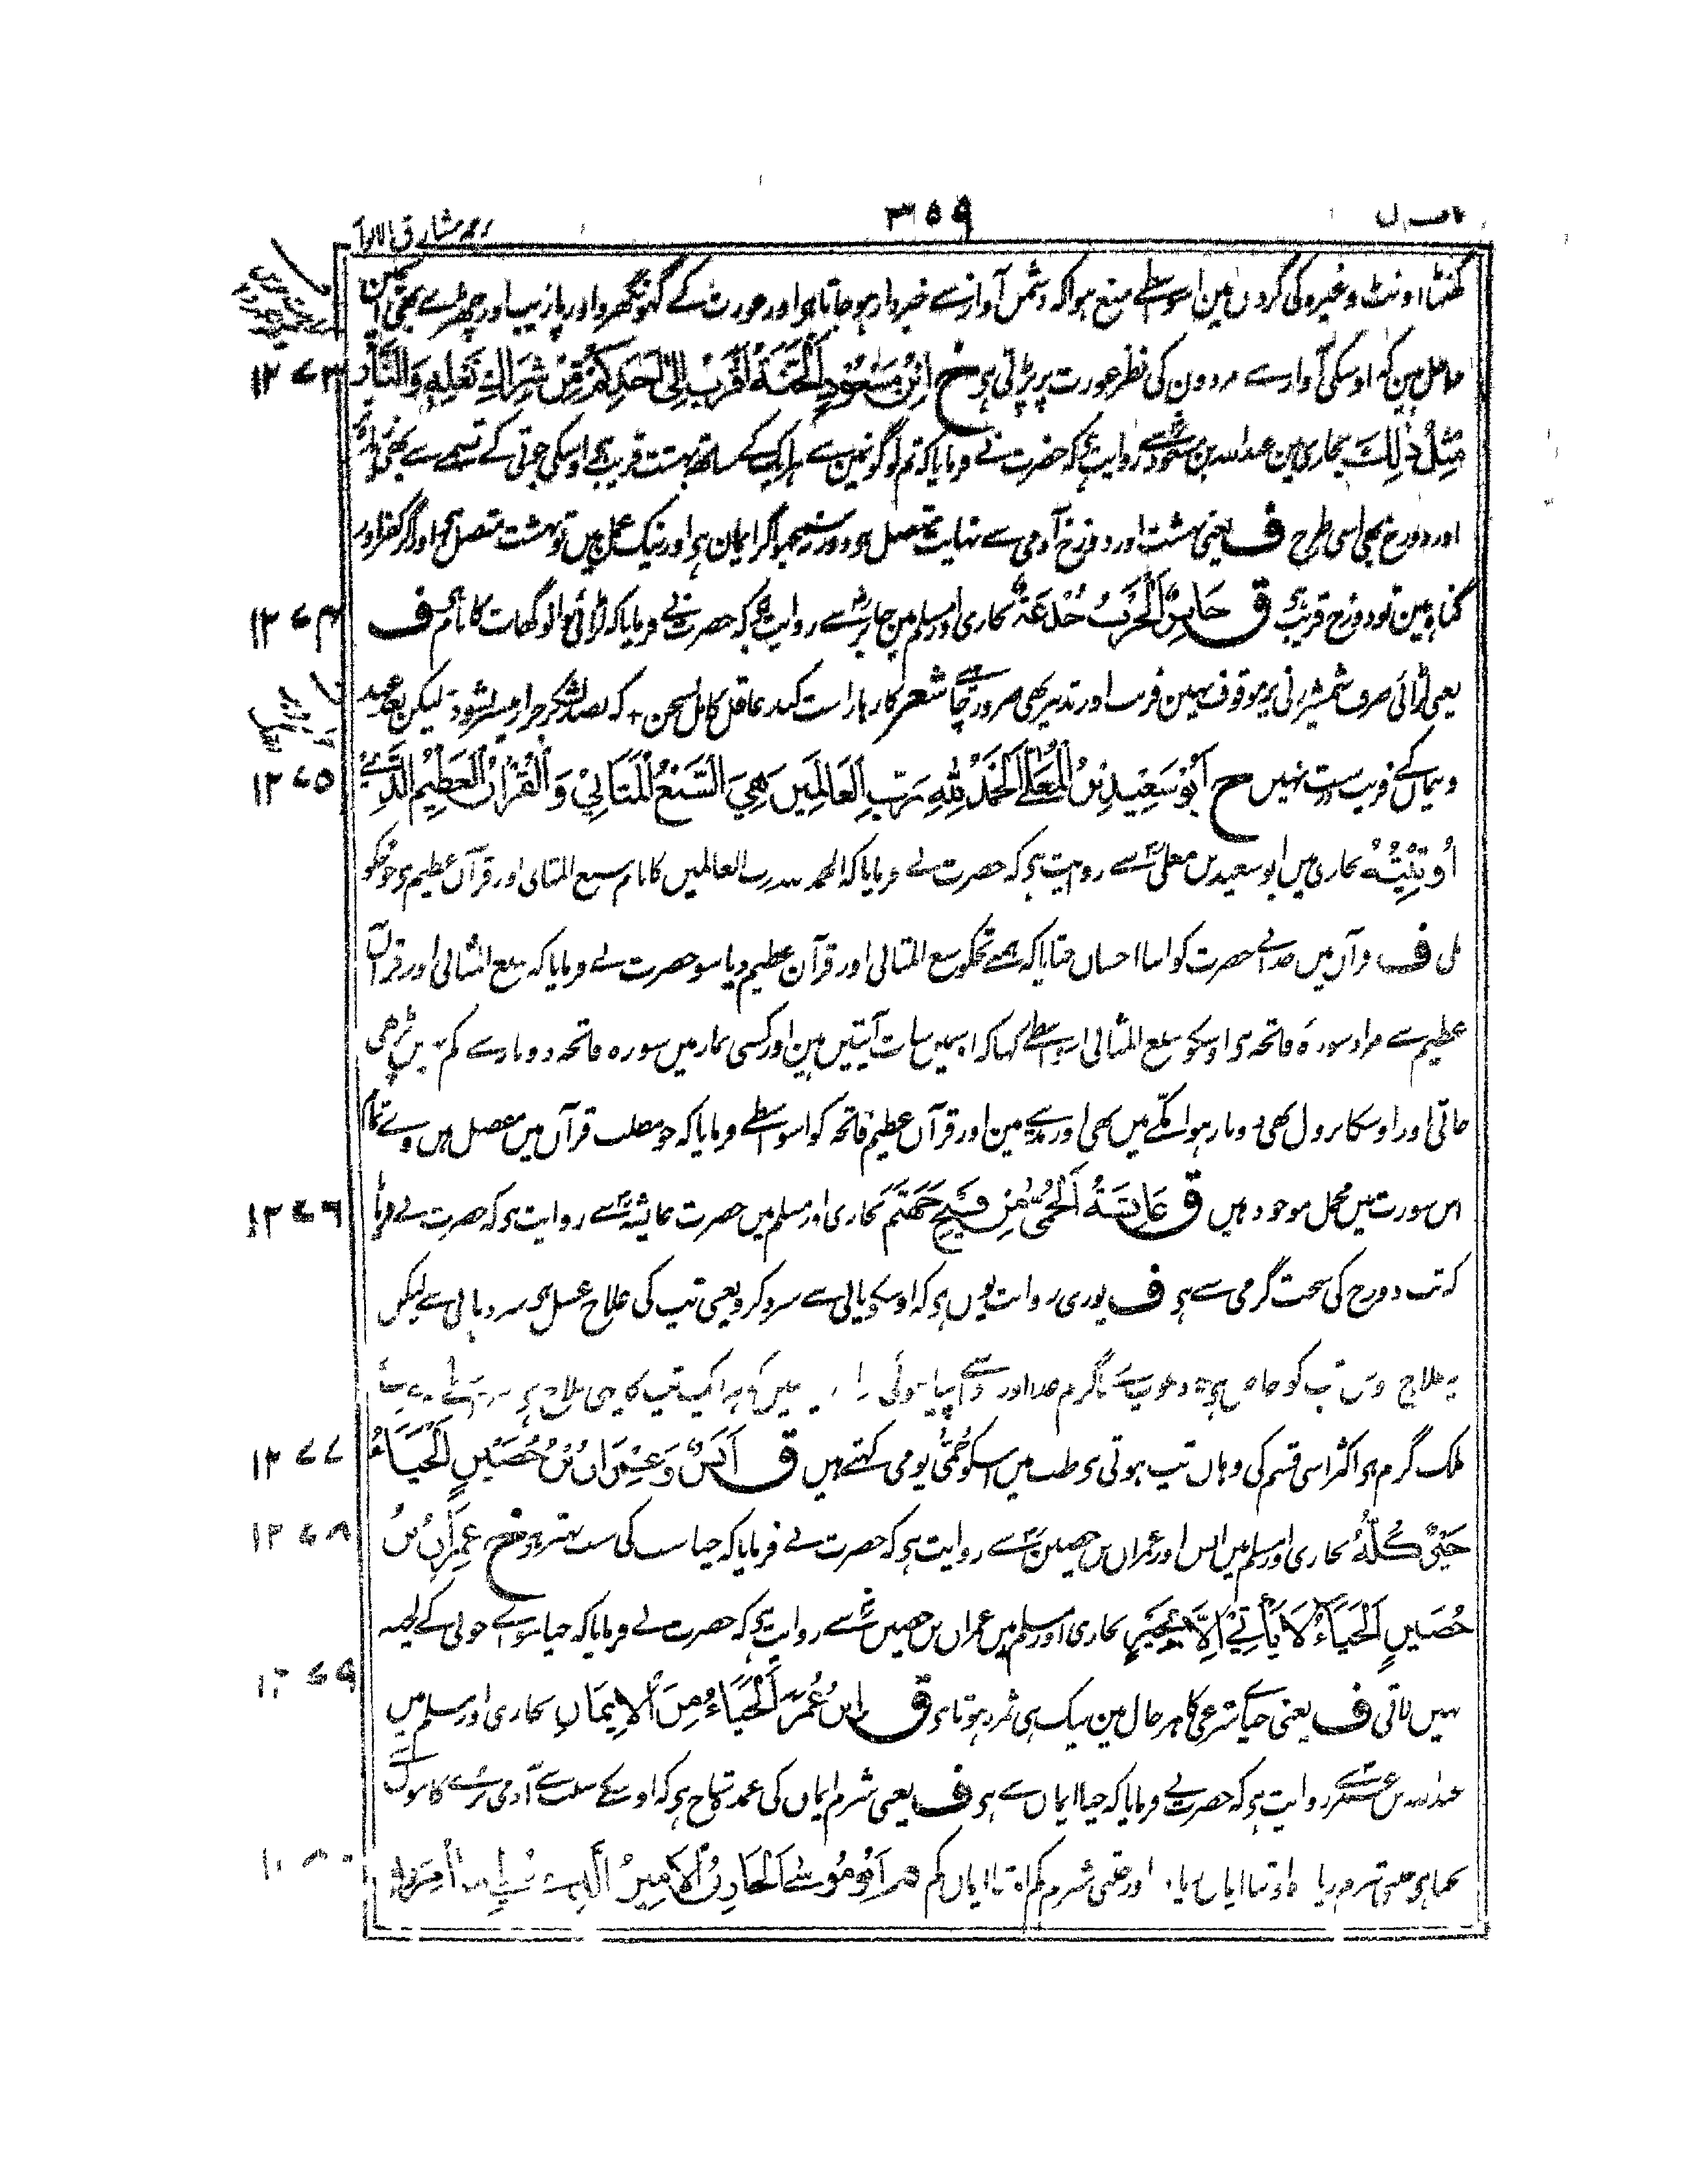 ۳۵۹
گھنٹا اونٹ وغیرہ کی گردن مین اسواسطے منع ہوا کہ دشمن آواز سے خبردار ہو جاتا ہی اور عورت کے گھونگھرو اور پازیب اور چھڑے بھی
داخل ہین کہ اوسکی آواز سے مردون کی نظر عورت پر پڑتی ہی خ اِبْنُ مَسْعُوْدٍ اَلْجَنَّةُ اَقْرَبُ اِلٰى اَحَدِكُمْ مِّنْ شِرَاكِ نَعْلِهٖ وَالنَّارُ
۱۲۷۳
مِثْلُ ذٰلِكَ بخاری مین عبداللہ بن مسعود سے روایت ہی کہ حضرت نے فرمایا کہ تم لوگونمین سے ہر ایک کے ساتھ بہشت قریب ہی اوسکی جوتی کے تسمے سے بھی
اور دوزخ بھی اسی طرح ف یعنی بہشت اور دوزخ آدمی سے نہایت متصل ہی دور نسمجھو اگر ایمان ہی اور نیک عمل ہیں تو بہشت متصل ہی اور اگر کفر اور
گناہ ہین تو دوزخ قریب ہی ق جَابِرٌ اَلْحَرْبُ خُدْعَةٌ بخاری اور مسلم مین جابر سے روایت ہی کہ حضرت نے فرمایا کہ لڑائی داؤ گھات کا نام ہی ف
۱۲۷۴
یعنی لڑائی صرف شمشیر زنی پر موقوف نہین فریب اور تدبیر بھی ضرور چاہیے شعر کارہا راست کند عاقل کامل بسخن + کہ بصد لشکر جرار میسر نشود لیکن بعد عہد
و پیمان کے فریب درست نہیں خ اَبُوْ سَعِيْدِ بْنُ الْمُعَلّٰى اَلْحَمْدُ لِلّٰهِ رَبِّ الْعَالَمِيْنَ هِيَ السَّبْعُ الْمَثَانِيْ وَالْقُرْاٰنُ الْعَظِيْمُ الَّذِيْ
۱۲۷۵
اُوْتِيْتُهٗ بخاری میں ابو سعید بن معلی سے روایت ہی کہ حضرت نے فرمایا کہ الحمد للہ رب العالمیں کا نام سبع المثانی اور قرآن عظیم ہی جو مجھکو
ملی ف قرآن میں خدا نے حضرت کو اپنا احسان جتایا کہ ہمنے تجکو سبع المثانی اور قرآن عظیم دیا سو حضرت نے فرمایا کہ سبع المثانی اور قرآن
عظیم سے مراد سورہ فاتحہ ہی اوسکو سبع المثانی اسواسطے کہا کہ اسمیں سات آیتیں ہین اور کسی نماز میں سورہ فاتحہ دو بار سے کم نہیں پڑھی
جاتی اور اوسکا نزول بھی دو بار ہوا مکے میں بھی اور مدینے مین اور قرآن عظیم فاتحہ کو اسواسطے فرمایا کہ جو مطلب قرآن میں مفصل ہیں وے تمام
اس سورت میں مجمل موجود ہیں ق عَائِشَةُ اَلْحُمّٰى مِنْ فَيْحِ جَهَنَّمَ بخاری اور مسلم میں حضرت عائشہ سے روایت ہی کہ حضرت نے فرمایا
۱۲۷۶
کہ تپ دوزخ کی سخت گرمی سے ہی ف پوری روایت یوں ہی کہ اوسکو پانی سے سرد کرو یعنی تپ کی علاج غسل ہی سرد پانی سے لیکن
یہ علاج اوس تپ کو خاص ہی جو دھوپ سے یا گرم غذا اور دوا سے پیدا ہوئی
ملک گرم ہی اکثر اسی قسم کی وہاں تپ ہوتی ہی طب میں اسکو حُمّٰی یومی کہتے ہیں ق اَنَسٌ وَعِمْرَانُ بْنُ حُصَيْنٍ اَلْحَيَاءُ
۱۲۷۷
خَيْرٌ كُلُّهٗ بخاری اور مسلم میں انس اور عمران بن حصین سے روایت ہی کہ حضرت نے فرمایا کہ حیا سب کی سب بہتر ہی خ عِمْرَانُ بْنُ
۱۲۷۸
حُصَيْنٍ اَلْحَيَاءُ لَا يَأْتِيْ اِلَّا بِخَيْرٍ بخاری اور مسلم میں عمران بن حصین سے روایت ہی کہ حضرت نے فرمایا کہ حیا سواے خوبی کے کچھ
نہیں لاتی ف یعنی حیا شرعی کا ہر حال مین نیک ہی ثمرہ ہوتا ہی ق اِبْنُ عُمَرَ اَلْحَيَاءُ مِنَ الْاِيْمَانِ بخاری اور مسلم میں
۱۲۷۹
عبداللہ بن عمر سے روایت ہی کہ حضرت نے فرمایا کہ حیا ایمان سے ہی ف یعنی شرم ایمان کی عمدہ شاخ ہی کہ اوسکے سبب سے آدمی برے کاموں سے
بچتا ہی جتنی شرم زیادہ اوتنا ایمان زیادہ اور جتنی شرم کم اوتنا ایمان کم م اَبُوْ مُوْسٰى اَلْخَازِنُ الْاَمِيْنُ